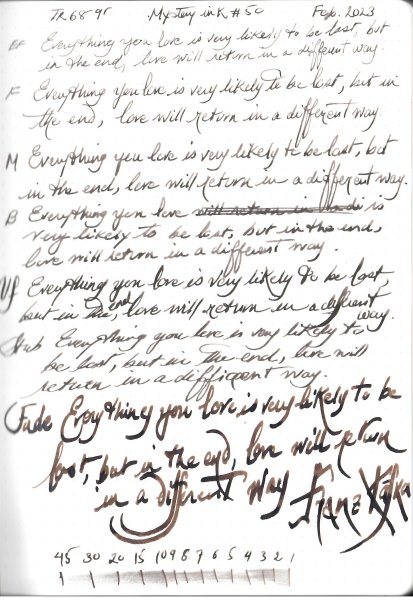 TR68gr Mystery ink #50 Feb. 2023
EF Everything you love is very likely to be lost, but
in the end, love will return in a different way.
F Everything you love is very likely to be lost, but in
the end, love will return in a different way.
M Everything you love is very likely to be lost, but
in the end, love will return in a different way.
B Everything you love will return in is
very likely to be lost, but in the end,
love will return in a different way.
Everything you love is very likely to be lost,
but in the end, love will return in a different way.
Stub Everything you love is very likely to
be lost, but in the end, love will
return in a different way.
Fude Everything you love is very likely to be
lost, but in the end, love will return
in a different way Franz Kafka
45 30 20 15 10 9 8 7 6 5 4 3 2 1